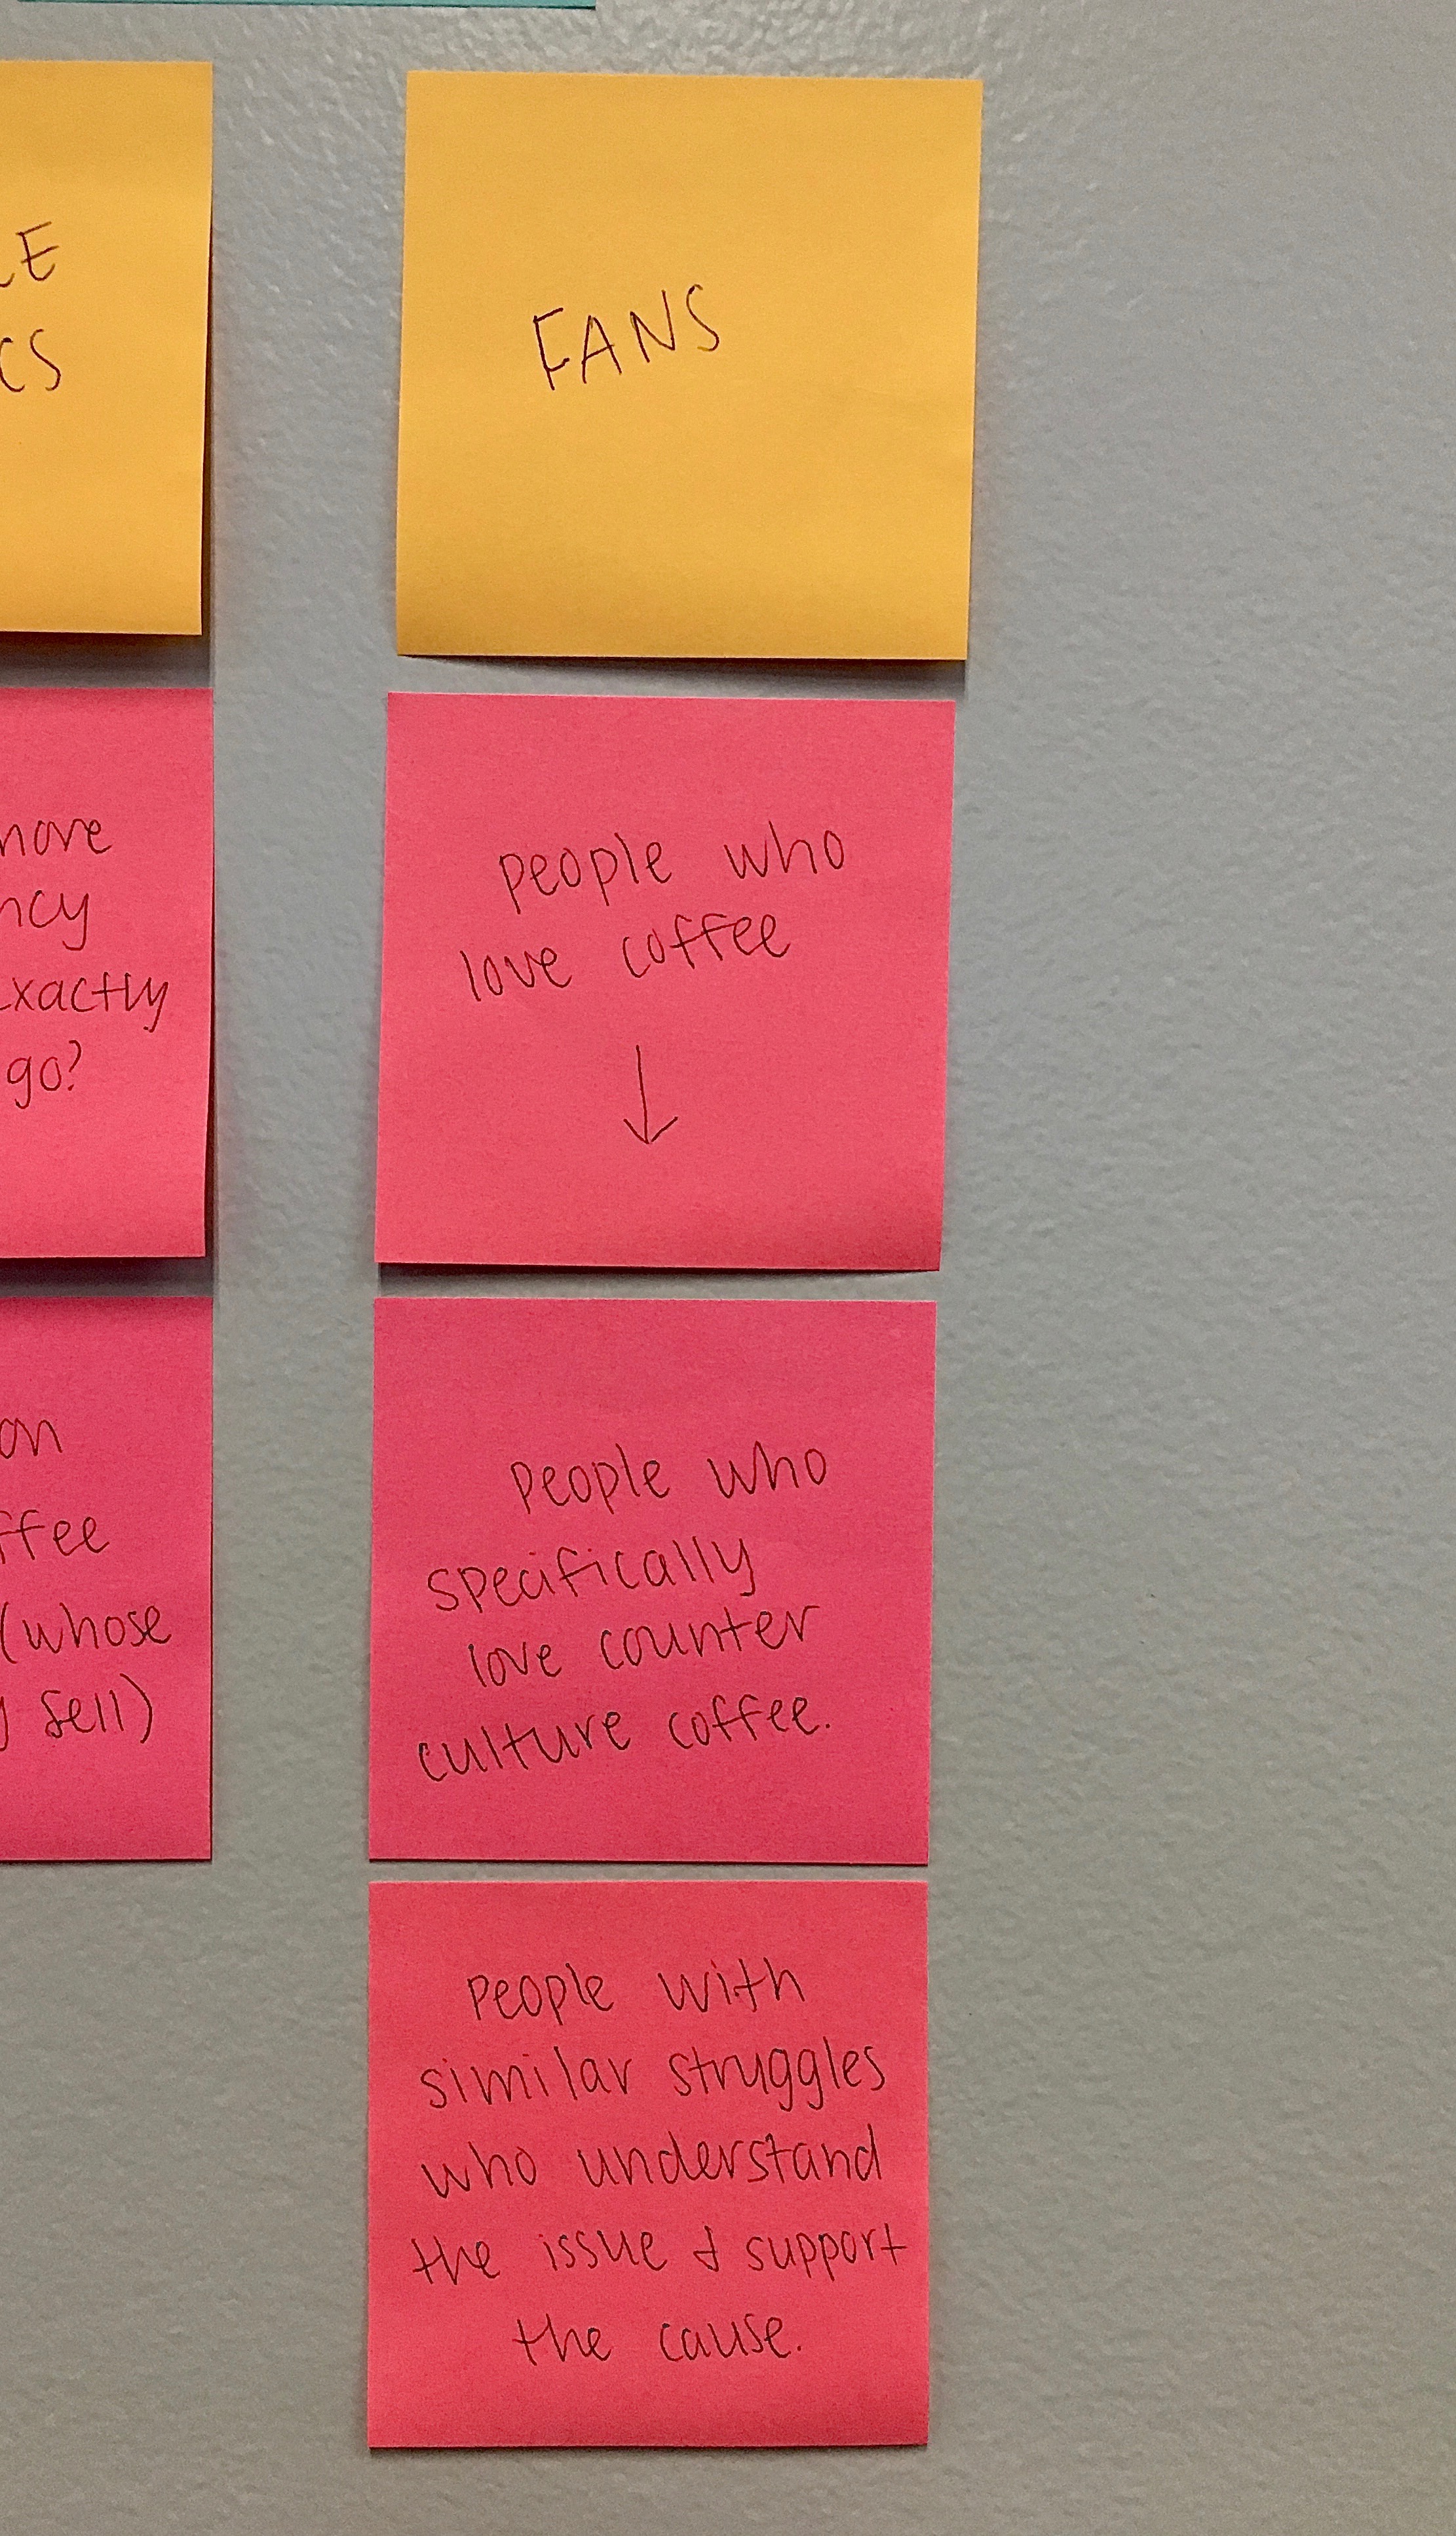 CS
more
exactly
go?
on
(whose
sell)
FANS
people who
love coffee
↓
People who
specifically
love counter
culture coffee.
People with
similar struggles
who understand
the issue & support
the cause.